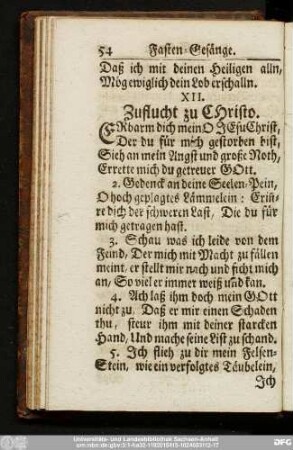 54 Fasten-Gesänge.
Daß ich mit deinen Heiligen alln,
Mög ewiglich dein Lob erschalln.
XII.
Zuflucht zu CHristo.
ERbarm dich mein O JEsu Christ,
Der du für mich gestorben bist,
Sieh an mein Angst und große Noth,
Errette mich du getreuer GOtt.
2. Gedenck an deine Seelen-Pein,
O hoch geplagtes Lämmelein: Erin-
re dich der schweren Last, Die du für
mich getragen hast.
3. Schau was ich leide von dem
Feind, Der mich mit Macht zu fällen
meint, er stellt mir nach und ficht mich
an, So viel er immer weiß und kan.
4. Ach laß ihm doch mein GOtt
nicht zu, Daß er mir einen Schaden
thu, steur ihm mit deiner starcken
Hand, Und mache seine List zu schand.
5. Jch flieh zu dir mein Felsen-
Stein, wie ein verfolgtes Täubelein,
Jch
Universitäts- und Landesbibliothek Sachsen-Anhalt
DFG